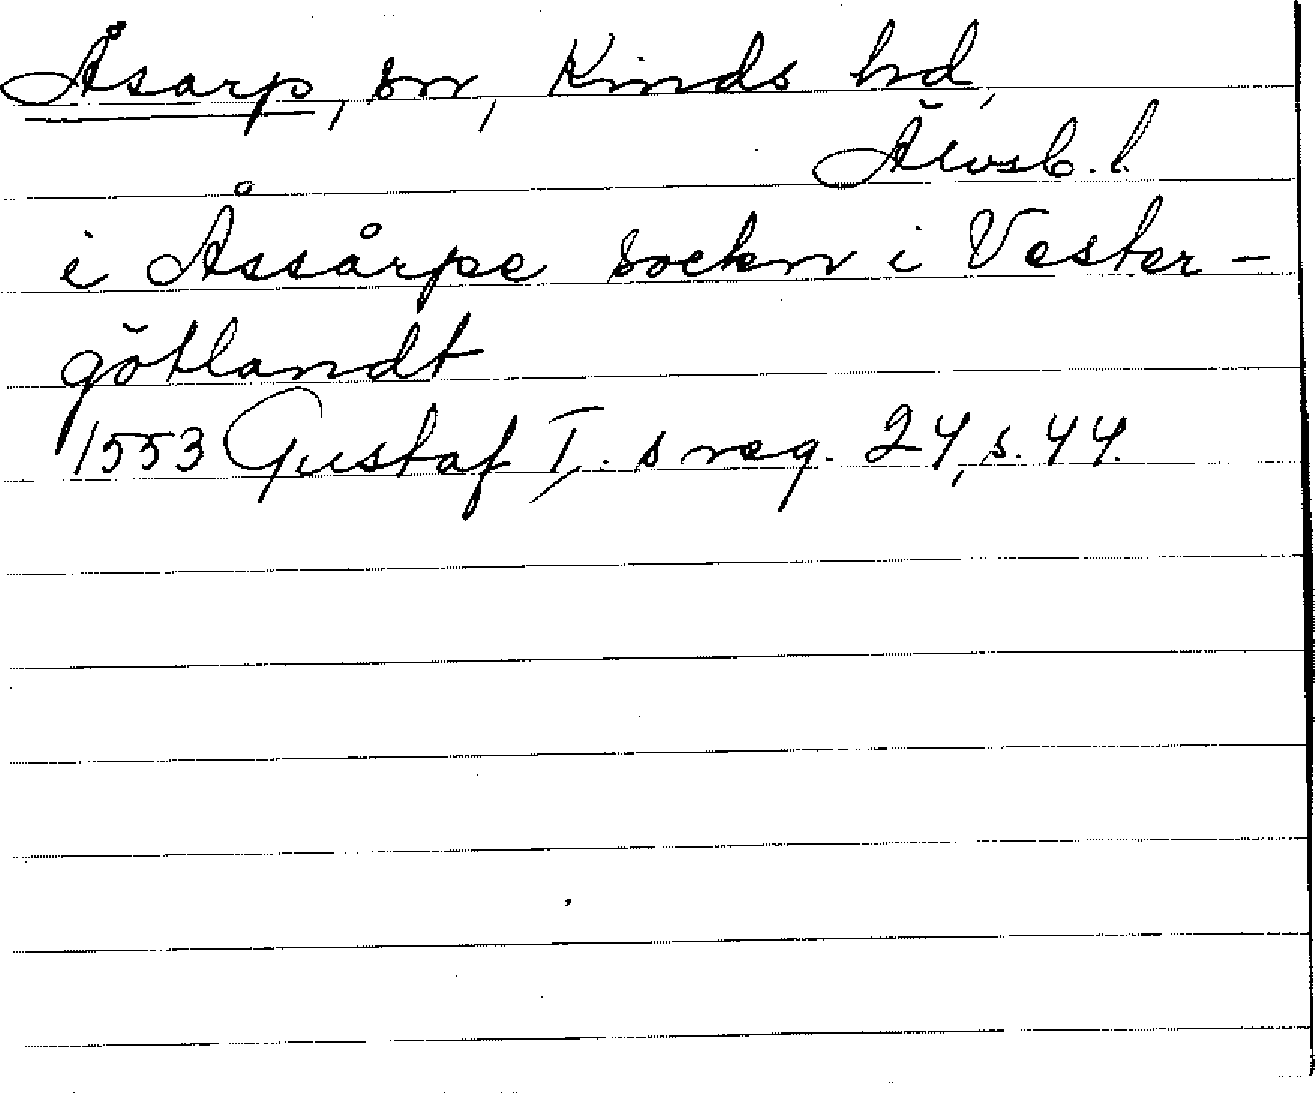 Åsarp, sn, Kinds hd,
Älvsb. l.
i Åssårpe sockn i Vester-
götlandt
1553 Gustaf I,s reg. 24, s. 44.